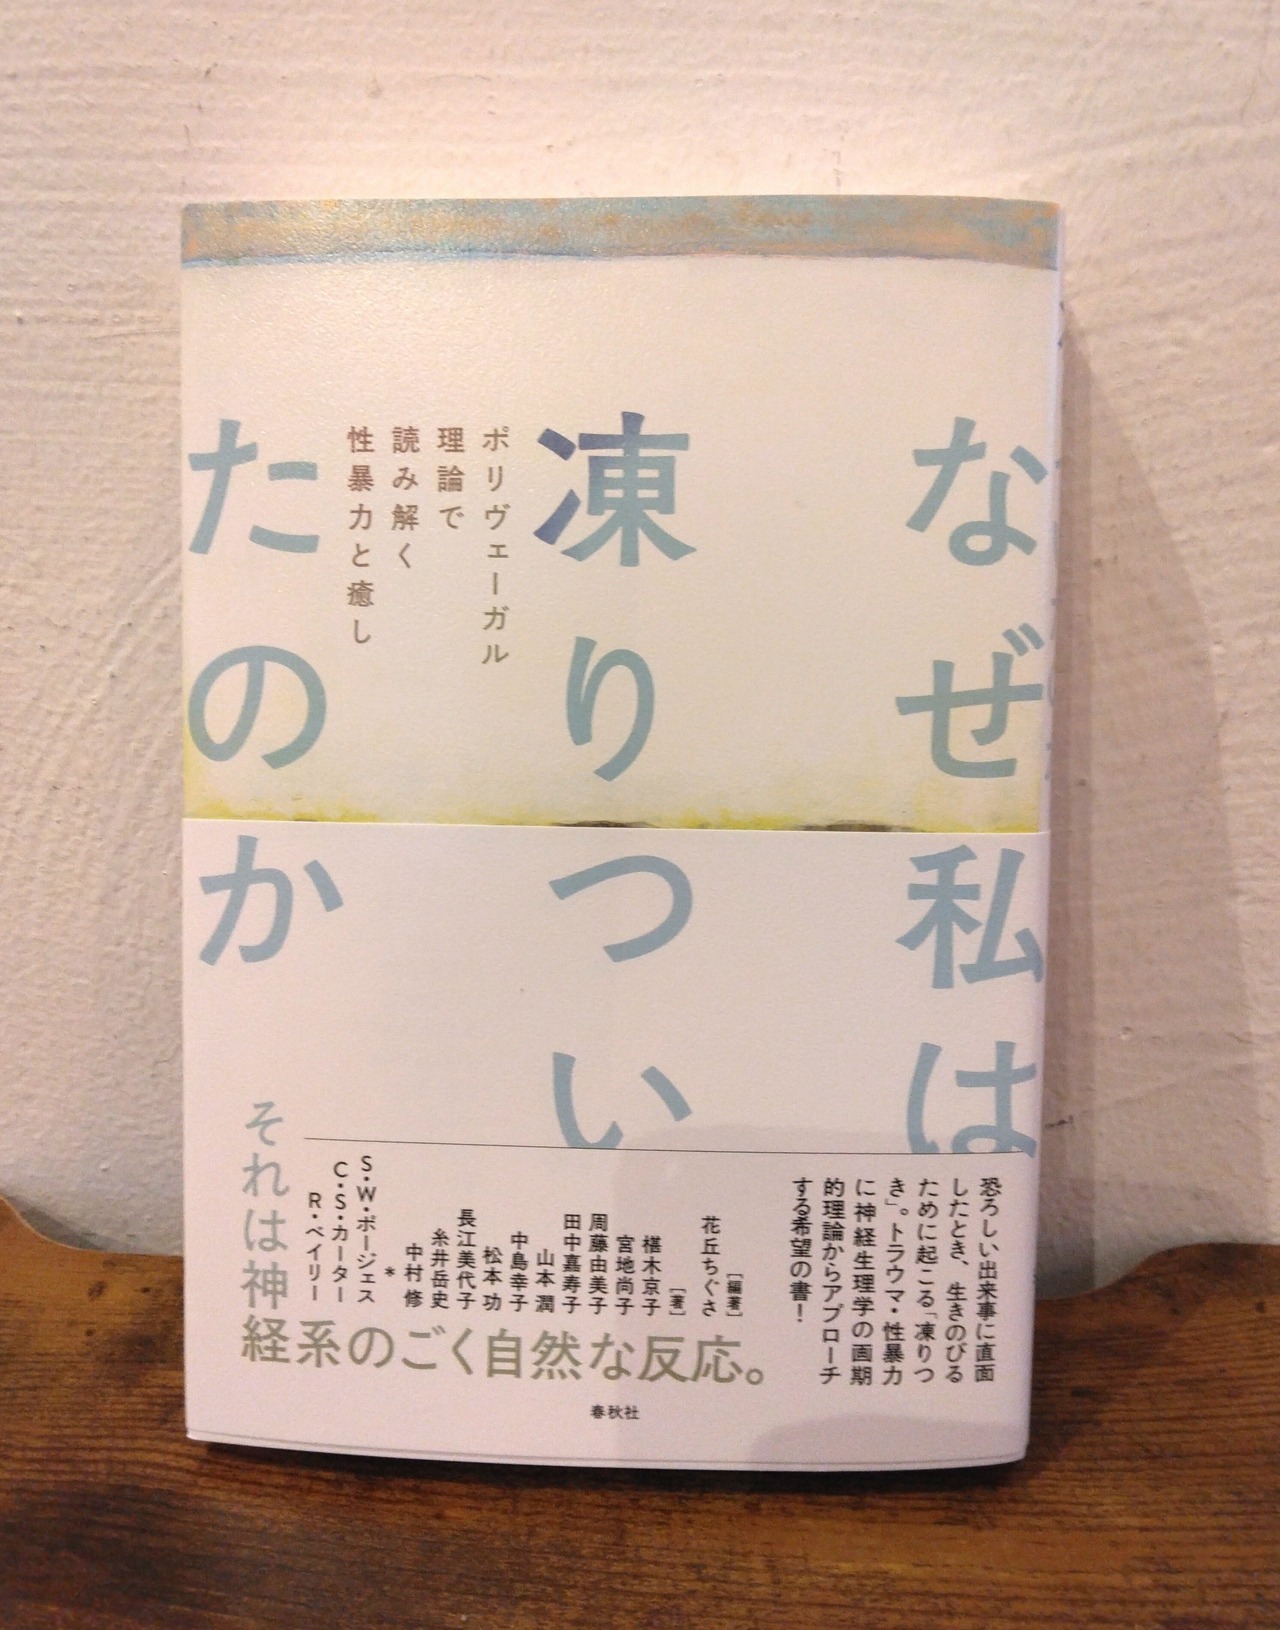 なぜ私は
凍りつい
たのか
ポリヴェーガル
理論で
読み解く
性暴力と癒し
恐ろしい出来事に直面
したとき、生きのびる
ために起こる「凍りつ
き」。トラウマ・性暴力
に神経生理学の画期
的理論からアプローチ
する希望の書!
[編著]
花丘ちぐさ
[著]
椹木京子
宮地尚子
周藤由美子
田中嘉寿子
山本 潤
中島幸子
松本 功
長江美代子
糸井岳史
中村 修
*
S・W・ポージェス
C・S・カーター
R・ベイリー
それは神経系のごく自然な反応。
春秋社